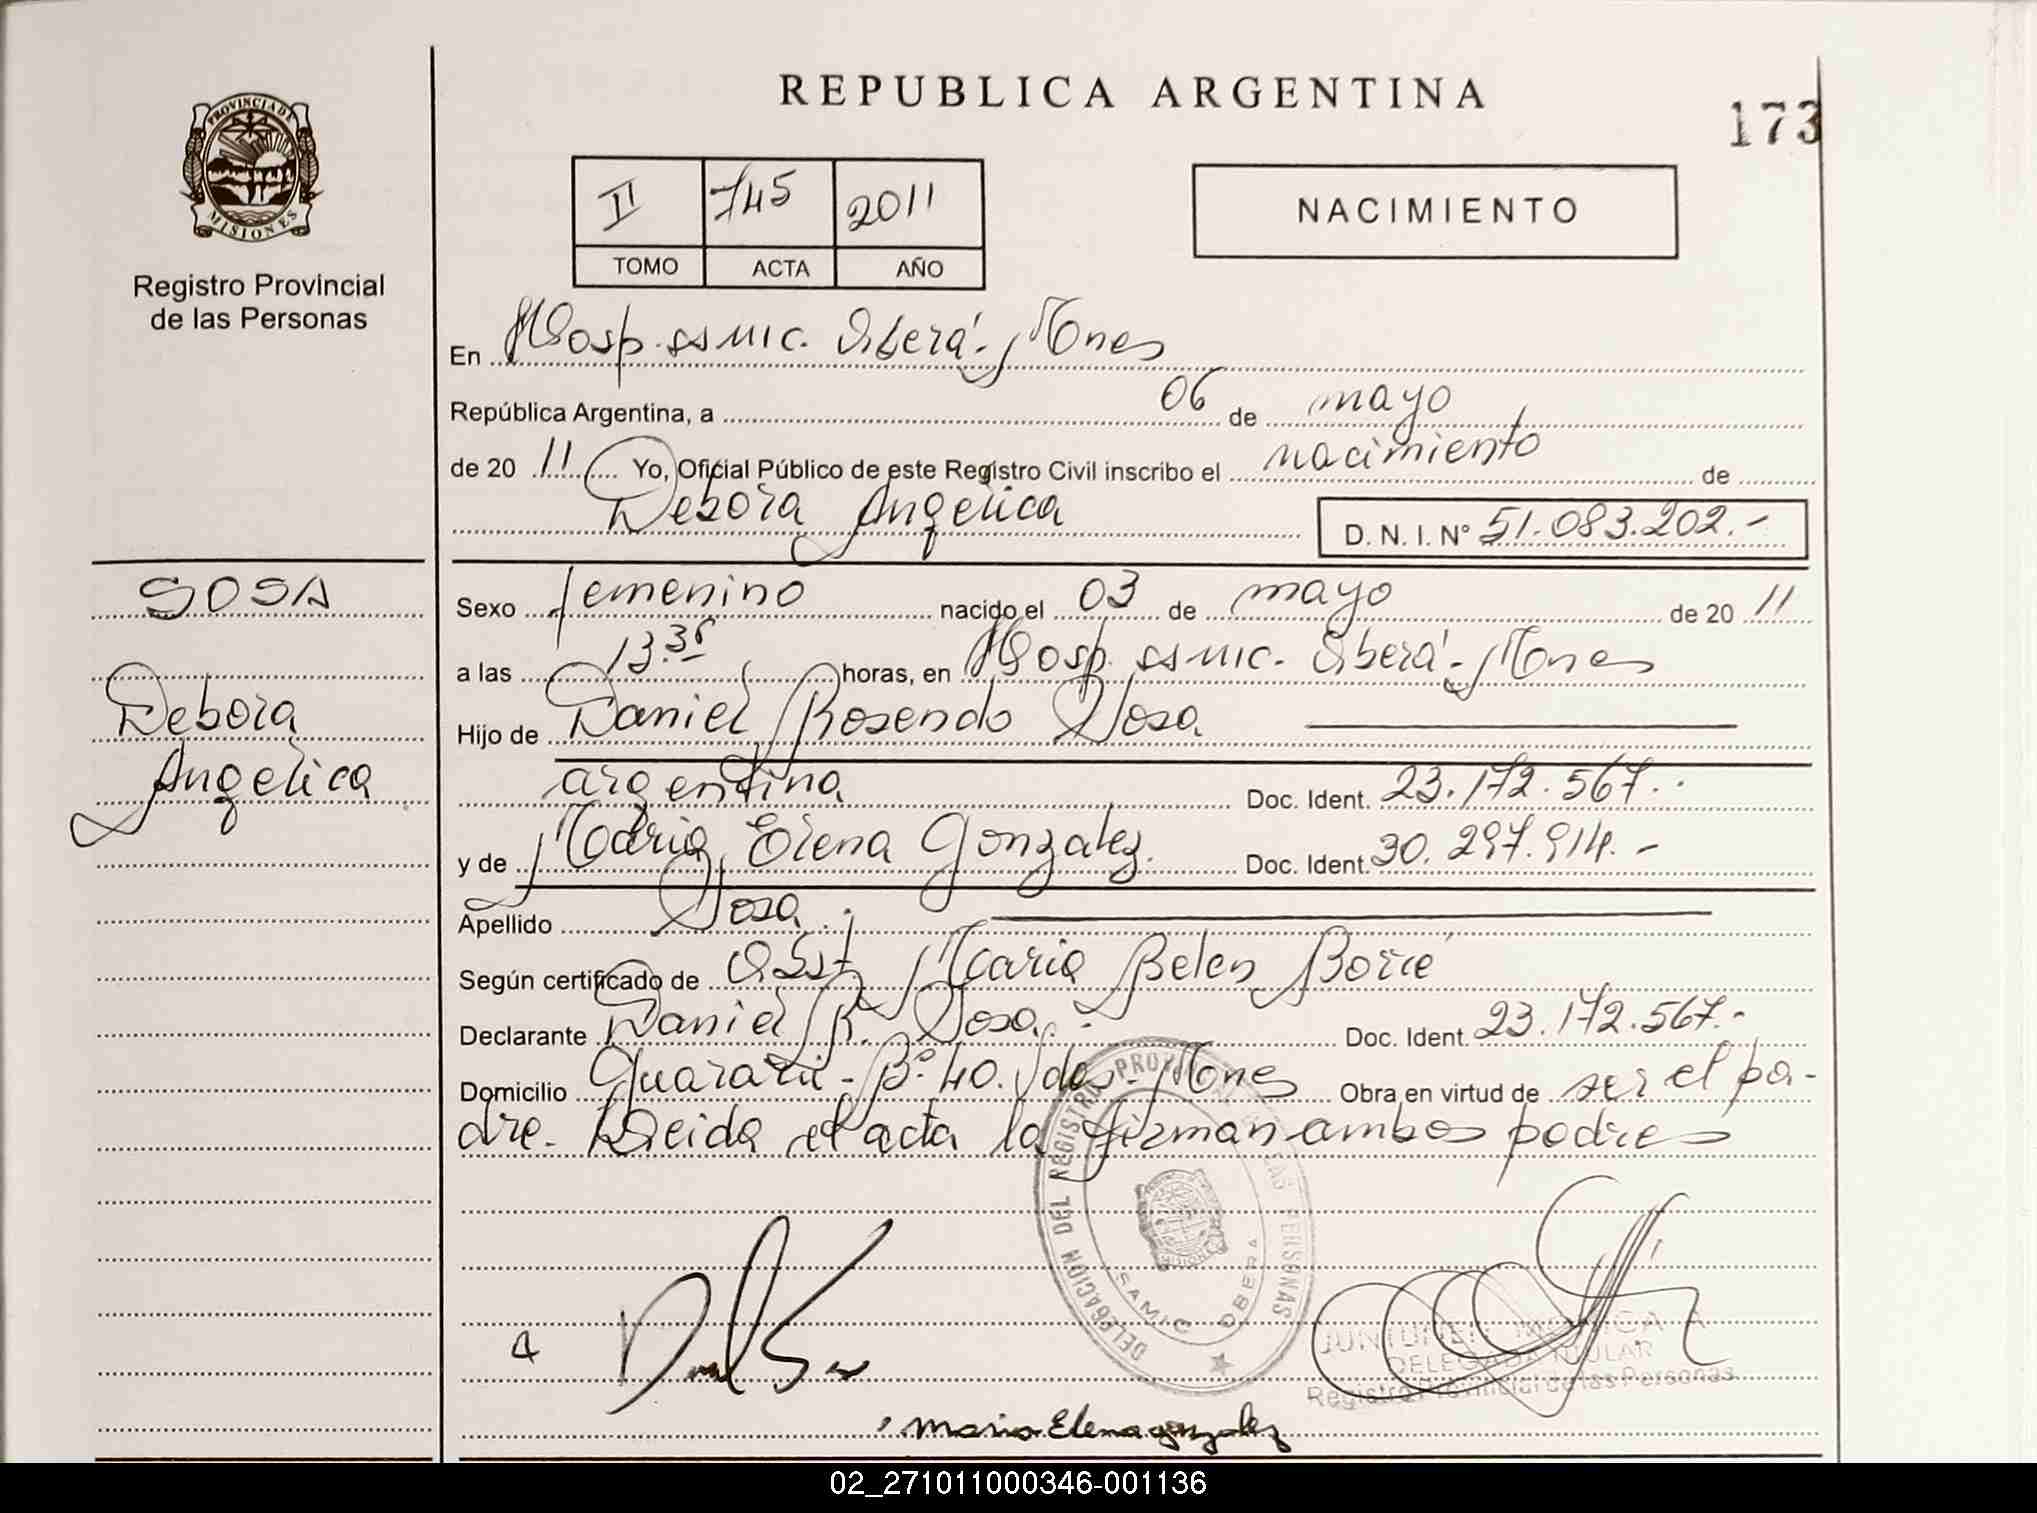 REPUBLICA ARGENTINA
173
PROVINCIA DE MISIONES
Registro Provincial
de las Personas
II 745 2011
TOMO ACTA AÑO
NACIMIENTO
En Hosp. SAMIC. Oberá - Mnes
República Argentina, a 06 de mayo
de 20 11 Yo, Oficial Público de este Registro Civil inscribo el nacimiento de
Debora Angelica D. N. I. Nº 51.083.202.-
SOSA
Debora
Angelica
Sexo femenino nacido el 03 de mayo de 20 11
a las 13.35 horas, en Hosp. SAMIC. Oberá - Mnes
Hijo de Daniel Rosendo Sosa
argentina Doc. Ident. 23.172.567.-
y de Maria Elena Gonzalez. Doc. Ident. 30.297.914.-
Apellido Sosa.
Según certificado de Obst. Maria Belen Borré
Declarante Daniel R. Sosa.- Doc. Ident. 23.172.567.-
Domicilio Guarani - Bº 40. Vdas - Mnes Obra en virtud de ser el pa-
dre. Leida el acta la firman ambos padres
DELEGACION DEL REGISTRO PROVINCIAL DE LAS PERSONAS
SAMIC OBERA
MONICA A
DELEGADA TITULAR
Registro Provincial de las Personas
Maria Elena gonzalez
02_271011000346-001136